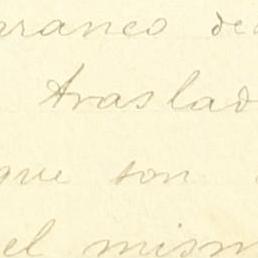 aranco de
traslad
que son
el mism